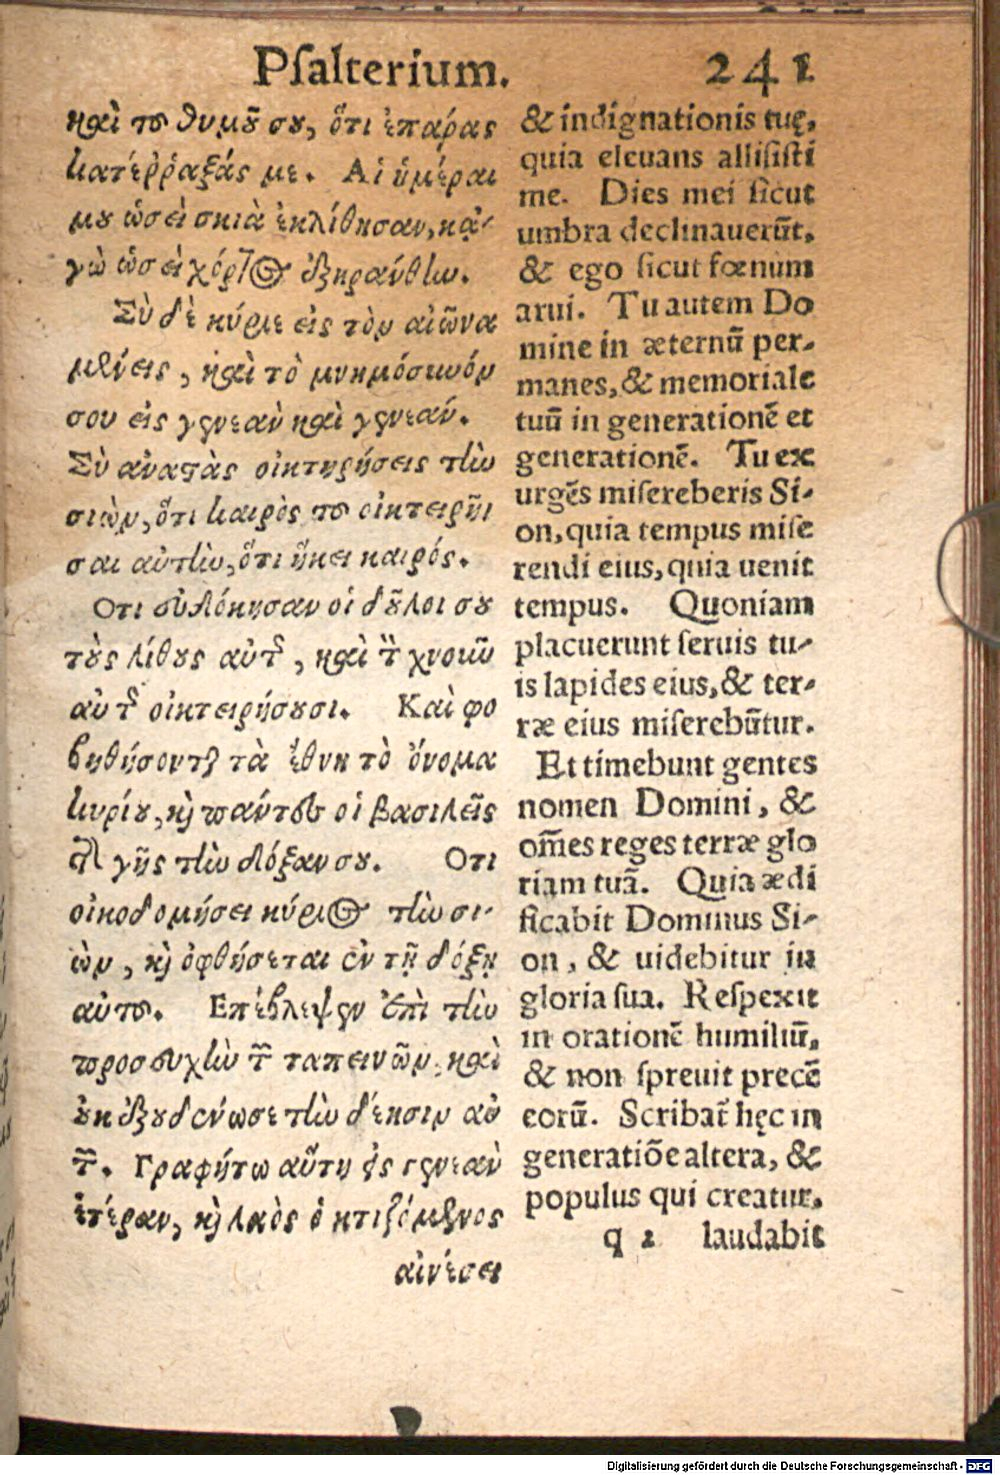 Psalterium. 241
καὶ τοῦ θυμοῦ σου, ὅτι ἐπάρας
κατέῤῥαξάς με. Αἱ ἡμέραι
μου ὡσεὶ σκιὰ ἐκλίθησαν, κᾀ-
γὼ ὡσεὶ χόρτος ἐξηράνθην.
Σὺ δὲ κύριε εἰς τὸν αἰῶνα
μένεις, καὶ τὸ μνημόσυνόν
σου εἰς γενεὰν καὶ γενεάν.
Σὺ ἀναστὰς οἰκτηρήσεις τὴν
σιὼν, ὅτι καιρὸς τοῦ οἰκτειρῆ
σαι αὐτὴν, ὅτι ἥκει καιρός.
Οτι εὐδόκησαν οἱ δοῦλοι σου
τοὺς λίθους αὐτῆς, καὶ τὸν χνοιῦν
αὐτῆς οἰκτειρήσουσι. Καὶ φο
βηθήσονται τὰ ἔθνη τὸ ὄνομα
κυρίου, καὶ πάντες οἱ βασιλεῖς
τῆς γῆς τὴν δόξαν σου. Οτι
οἰκοδομήσει κύριος τὴν σι-
ὼν, καὶ ὀφθήσεται ἐν τῇ δόξῃ
αὐτοῦ. Επέβλεψεν ἐπὶ τὴν
προσευχὴν τῶν ταπεινῶν, καὶ
οὐκ ἐξουδένωσε τὴν δέησιν αὐ
τῶν. Γραφήτω αὕτη εἰς γενεὰν
ἑτέραν, καὶ λαὸς ὁ κτιζόμενος
αἰνέσει
& indignationis tuę,
quia eleuans allisisti
me. Dies mei sicut
umbra declinauerūt,
& ego sicut fœnum
arui. Tu autem Do
mine in æternū per-
manes, & memoriale
tuū in generationē et
generationē. Tu ex
urgēs misereberis Si-
on, quia tempus mise
rendi eius, quia uenit
tempus. Quoniam
placuerunt seruis tu-
is lapides eius, & ter-
ræ eius miserebūtur.
Et timebunt gentes
nomen Domini, &
om̄es reges terræ glo
riam tuā. Quia ædi
ficabit Dominus Si-
on, & uidebitur in
gloria sua. Respexit
in orationē humiliū,
& non spreuit precē
eorū. Scribat̄ hęc in
generatiōe altera, &
populus qui creatur,
q 2 laudabit
Digitalisierung gefördert durch die Deutsche Forschungsgemeinschaft - DFG